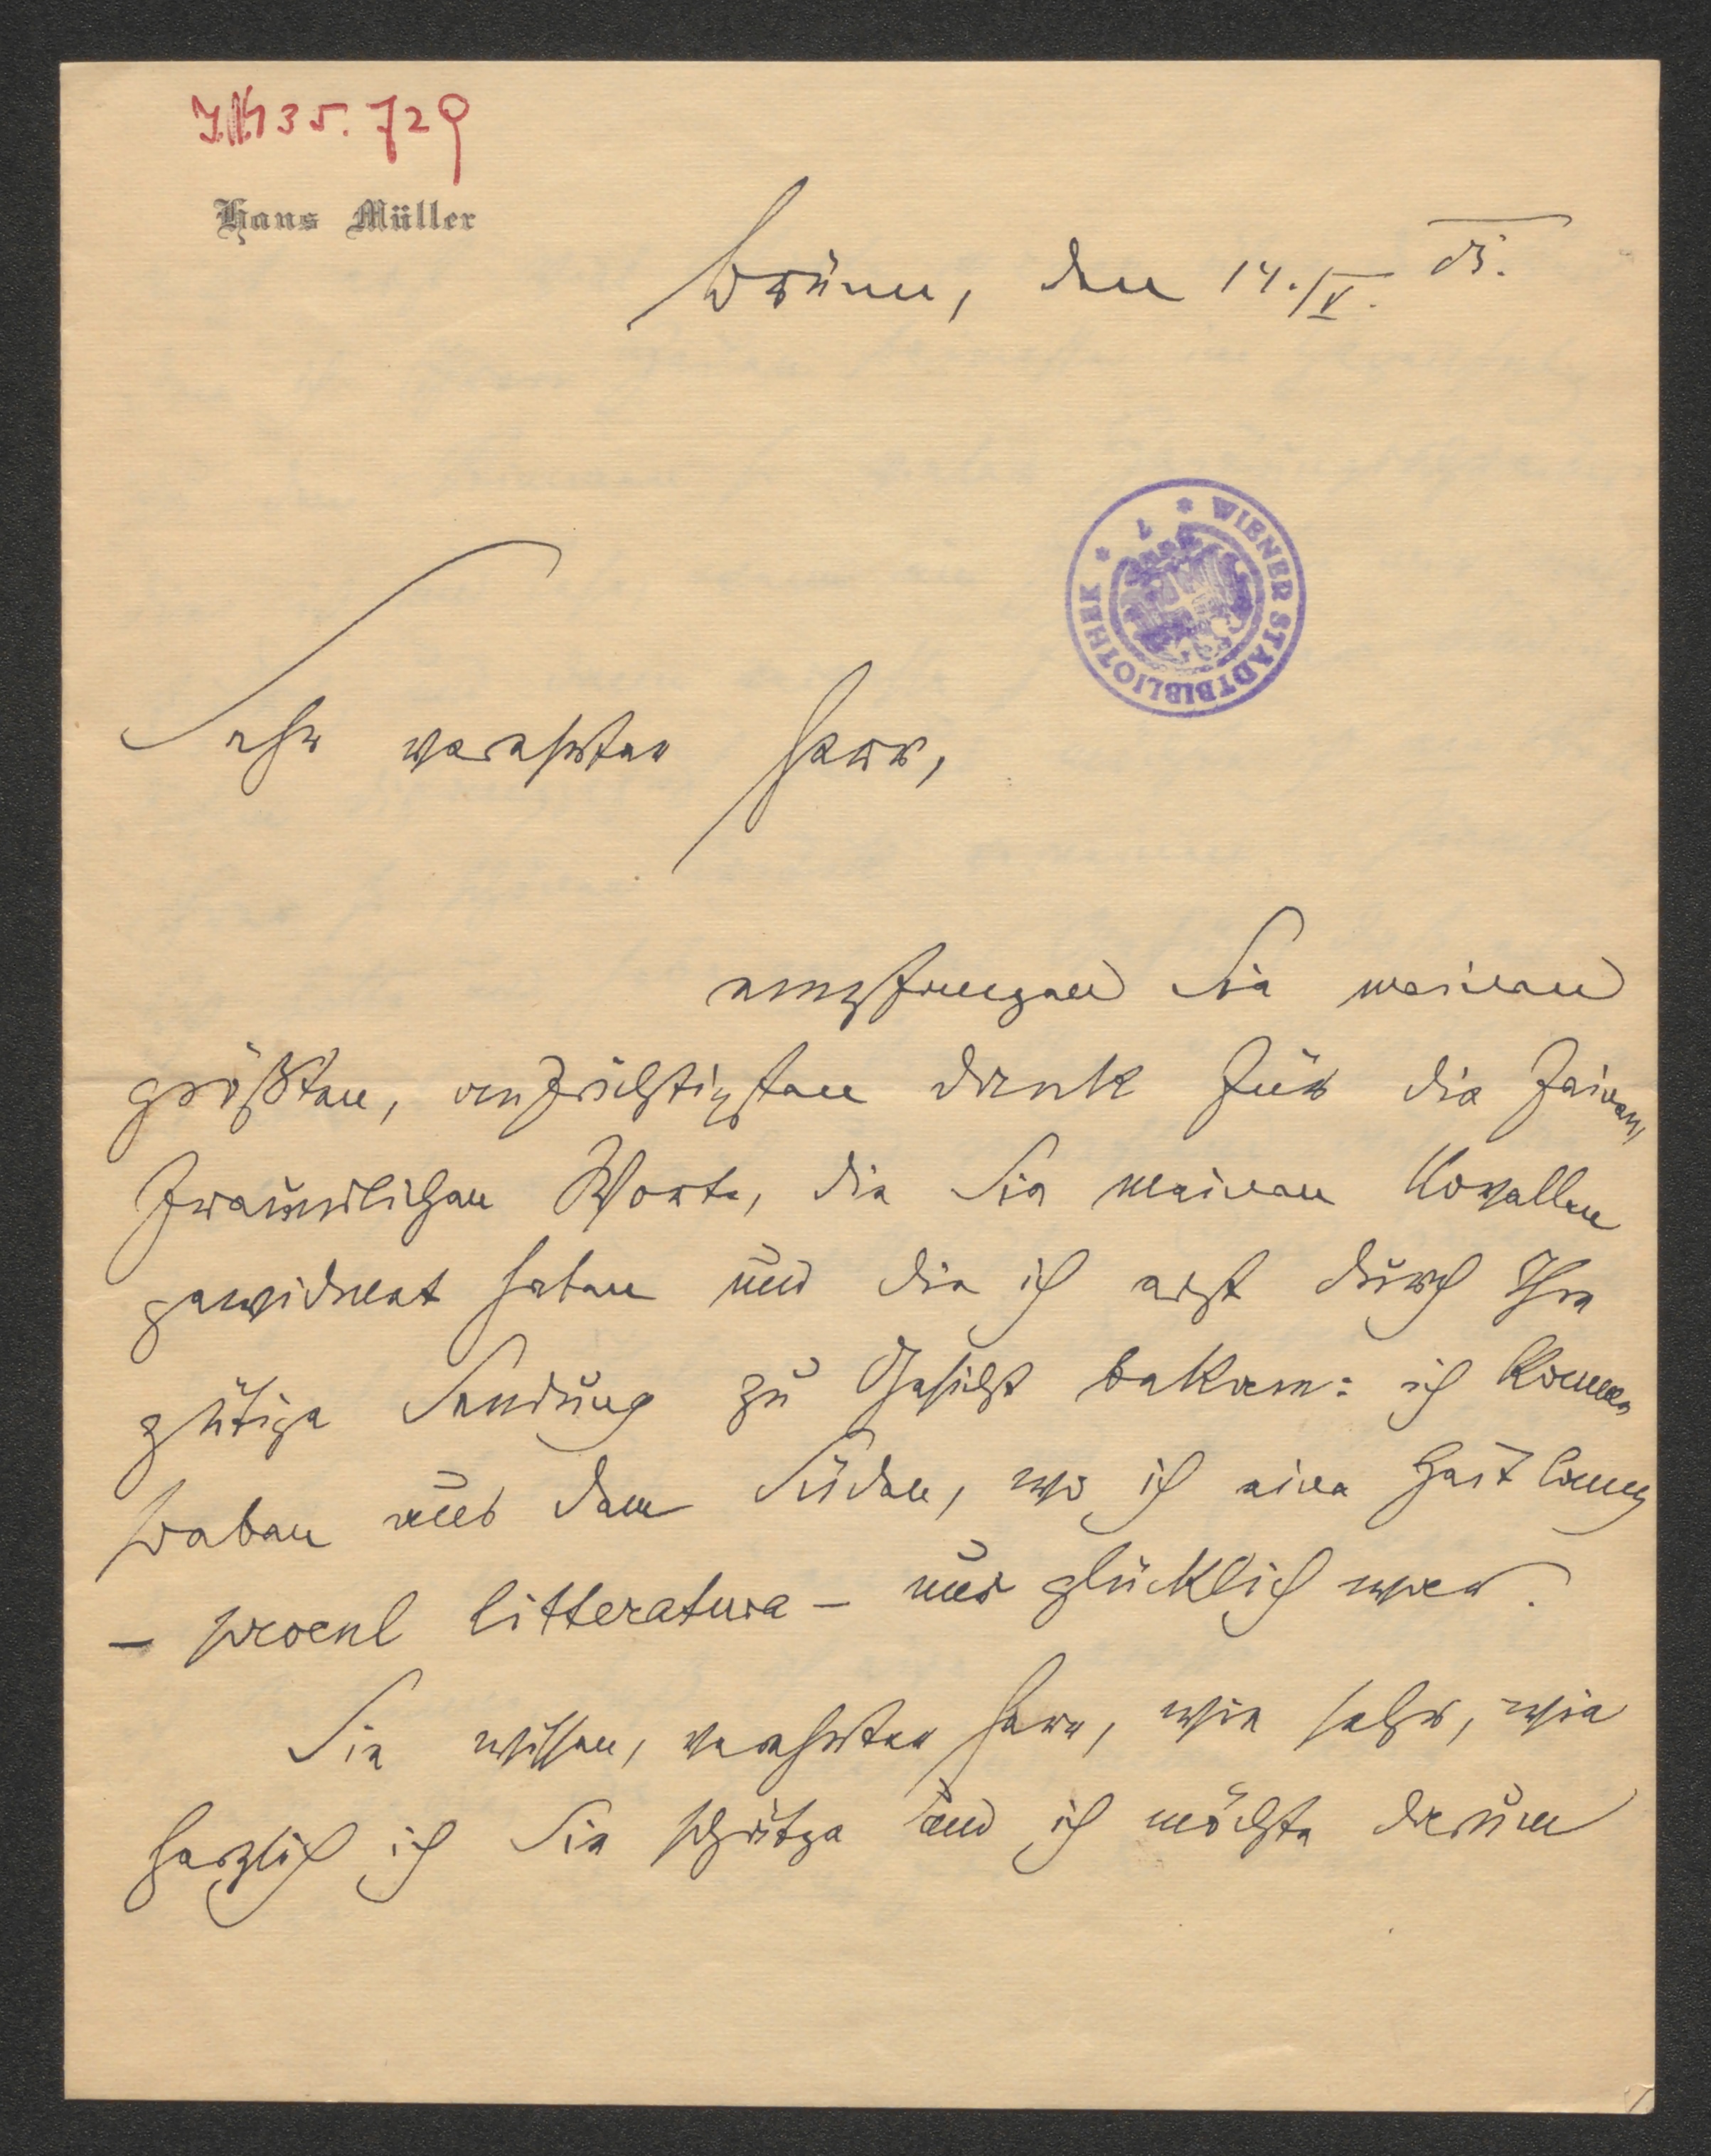 J.N. 35.729
Hans Müller
Brünn, den 14./V. 05.
WIENER STADTBIBLIOTHEK
Sehr verehrter Herr,
empfangen Sie meinen
größten, aufrichtigsten Dank für die feinen,
freundlichen Worte, die Sie meinen Novellen
gewidmet haben und die ich erst durch Ihre
gütige Sendung zu Gesicht bekam: ich komme
soeben aus dem Süden, wo ich eine Zeit lang
– procul litteratura – nur glücklich war.
Sie wissen, verehrter Herr, wie sehr, wie
herzlich ich Sie schätze und ich möchte darum